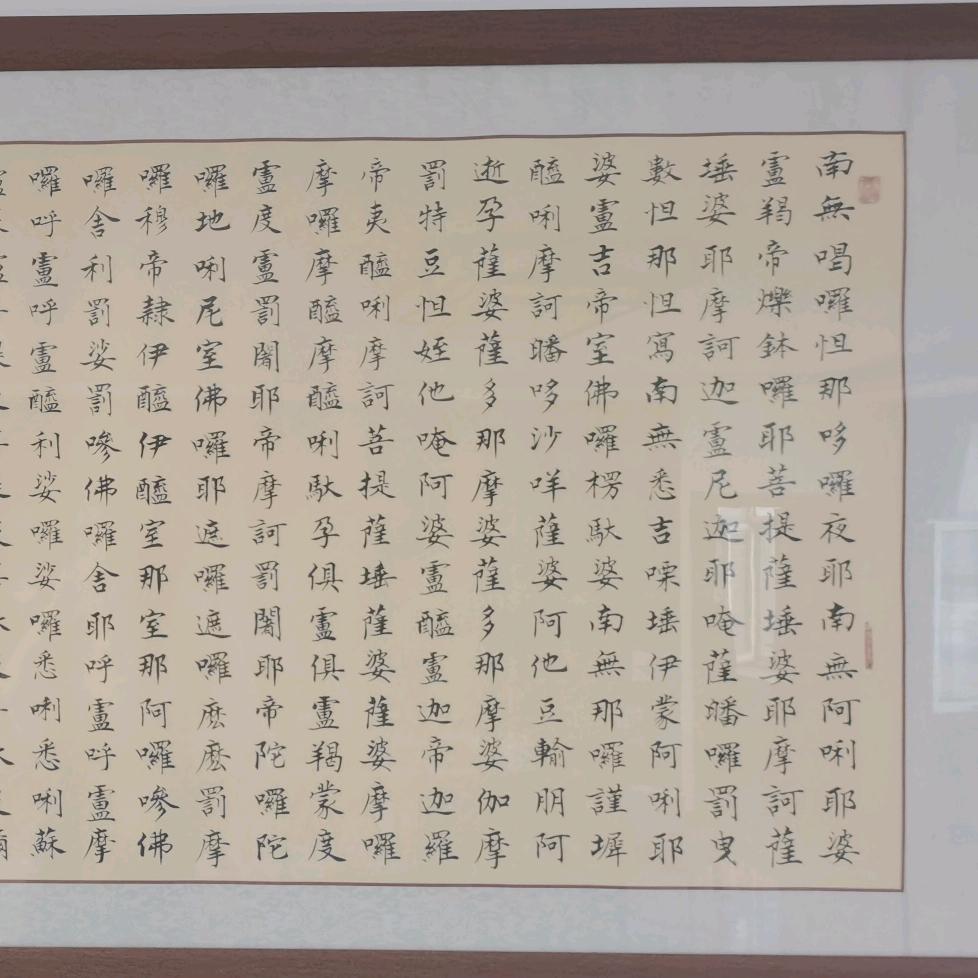 南無喝囉怛那哆囉夜耶南無阿唎耶婆
盧羯帝爍鉢囉耶菩提薩埵婆耶摩訶薩
埵婆耶摩訶迦盧尼迦耶唵薩皤囉罰曳
數怛那怛寫南無悉吉㗚埵伊蒙阿唎耶
婆盧吉帝室佛囉楞馱婆南無那囉謹墀
醯唎摩訶皤哆沙咩薩婆阿他豆輸朋阿
逝孕薩婆薩多那摩婆薩多那摩婆伽摩
罰特豆怛姪他唵阿婆盧醯盧迦帝迦羅
帝夷醯唎摩訶菩提薩埵薩婆薩婆摩囉
摩囉摩醯摩醯唎馱孕俱盧俱盧羯蒙度
盧度盧罰闍耶帝摩訶罰闍耶帝陀囉陀
囉地唎尼室佛囉耶遮囉遮囉麽麽罰摩
囉穆帝隸伊醯伊醯室那室那阿囉嘇佛
囉舍利罰娑罰嘇佛囉舍耶呼盧呼盧摩
囉呼盧呼盧醯利娑囉娑囉悉唎悉唎蘇